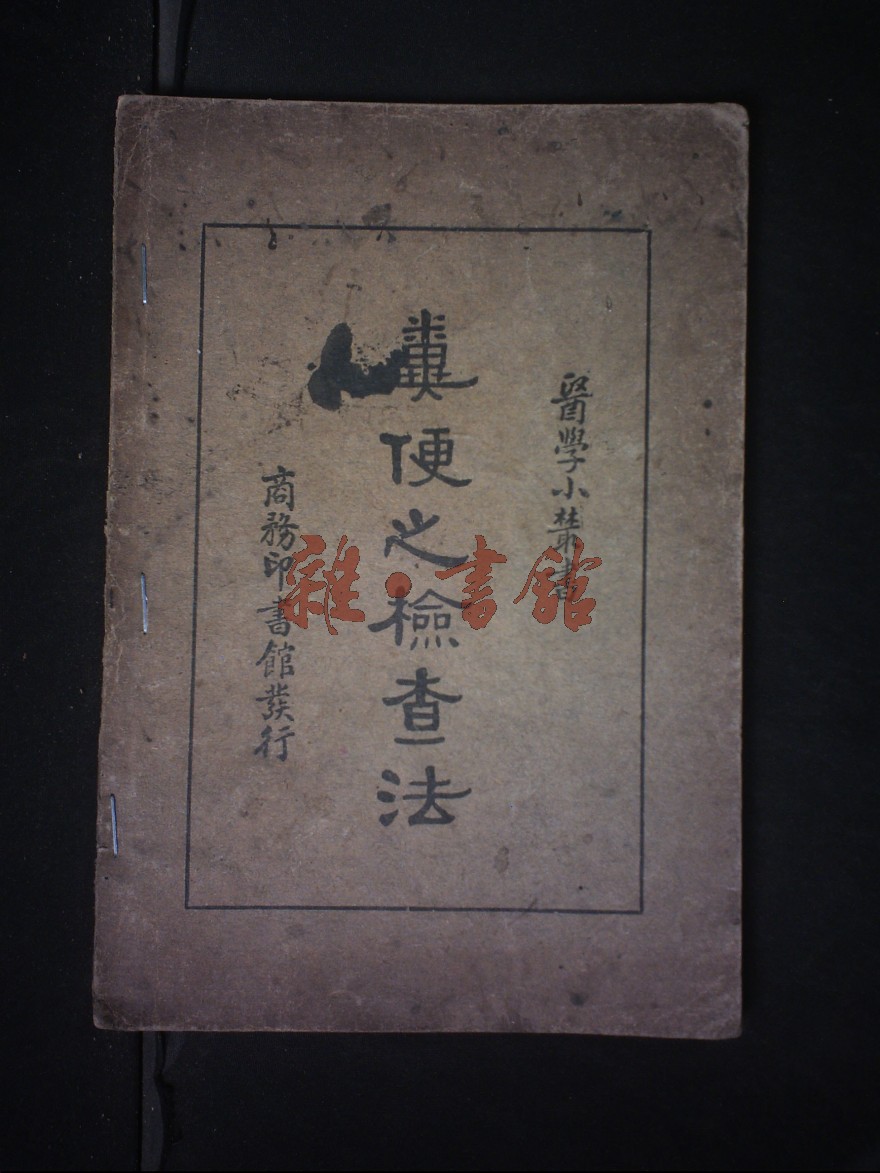 醫學小叢書
糞便之檢查法
商務印書館發行
雜·書館